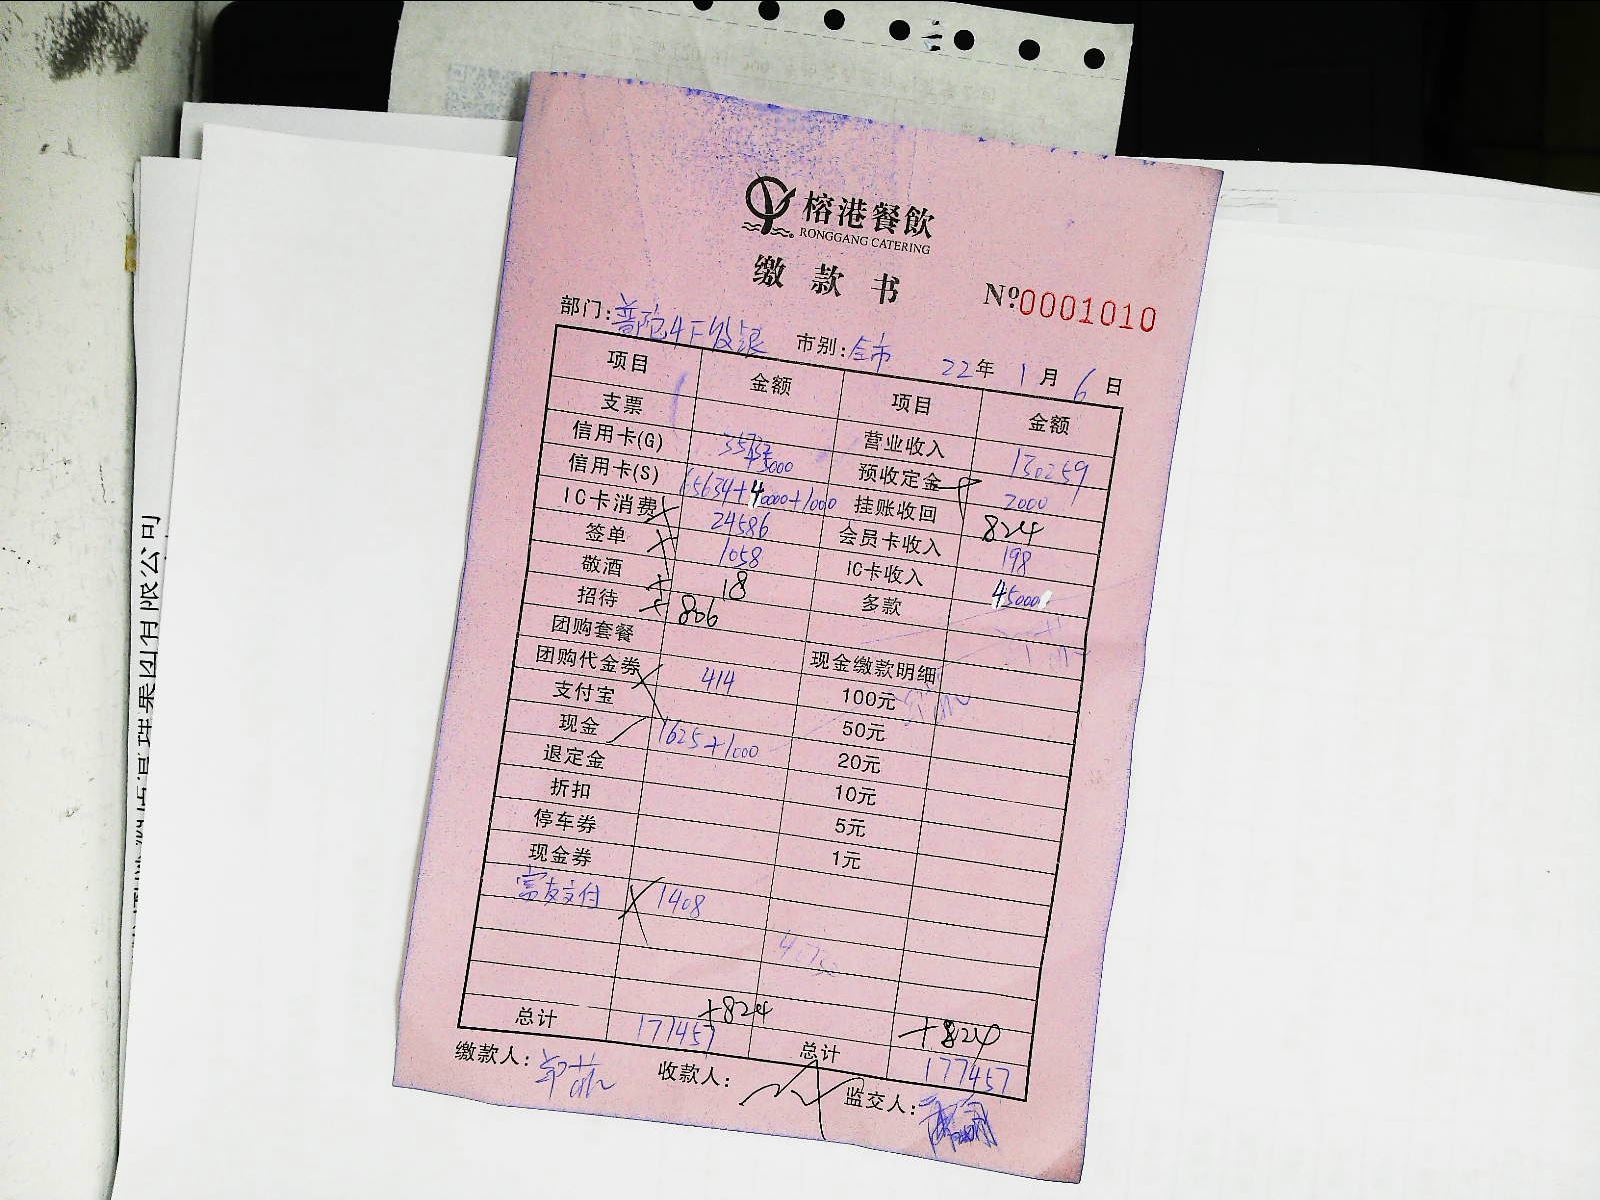 榕港餐飲
RONGGANG CATERING
缴款书
№0001010
部门:普陀4F收银 市别:全市 22年1月6日
项目 金额 项目 金额
支票 营业收入 130259
信用卡(G) +3000 预收定金 2000
信用卡(S) 65634+40000+1000 挂账收回 824
IC卡消费 24586 会员卡收入 198
签单 1058 IC卡收入 45000
敬酒 18 多款
招待 806
团购套餐 现金缴款明细
团购代金券 414 100元
支付宝 50元
现金 1625+1000 20元
退定金 10元
折扣 5元
停车券 1元
现金券
富友支付 1408
+824 +824
总计 177457 总计 177457
缴款人: 收款人: 监交人: